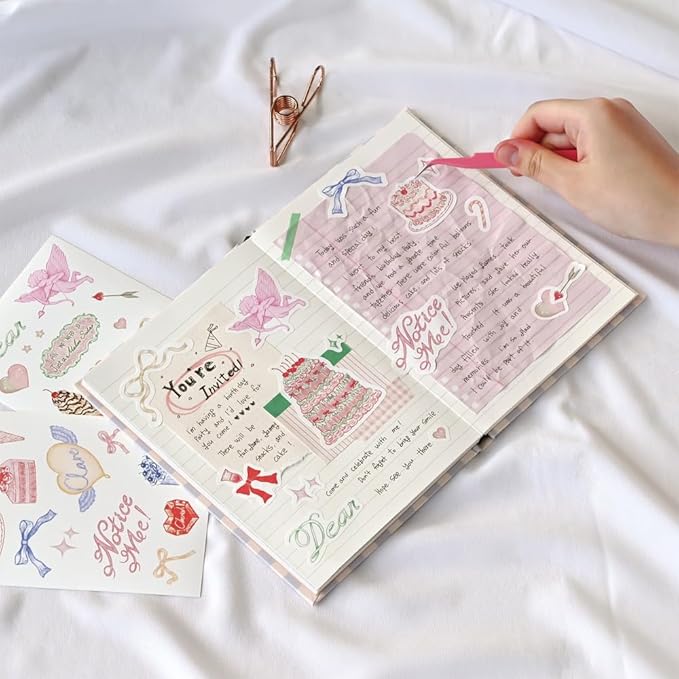 You're
Invited!
I'm having a birthday
Party and I'd love for
you come!
There will be
fun, game, yummy
snacks, and
cake!
Come and celebrate with me!
Don't forget to bring your smile.
Hope see you there
Dear
Today was such a fun
and special day!
I went to my best
friend's birthday Party,
and we had a great time
together. There were colorful balloons,
delicious cake, and lots of snacks.
Notice
Me!
We Played games, took
Pictures, and gave
Presents. She looked really
touched. It was a beautiful
day filled with Joy and
memories. I'm so glad
I could be part of it.
Dear
Notice
Me!